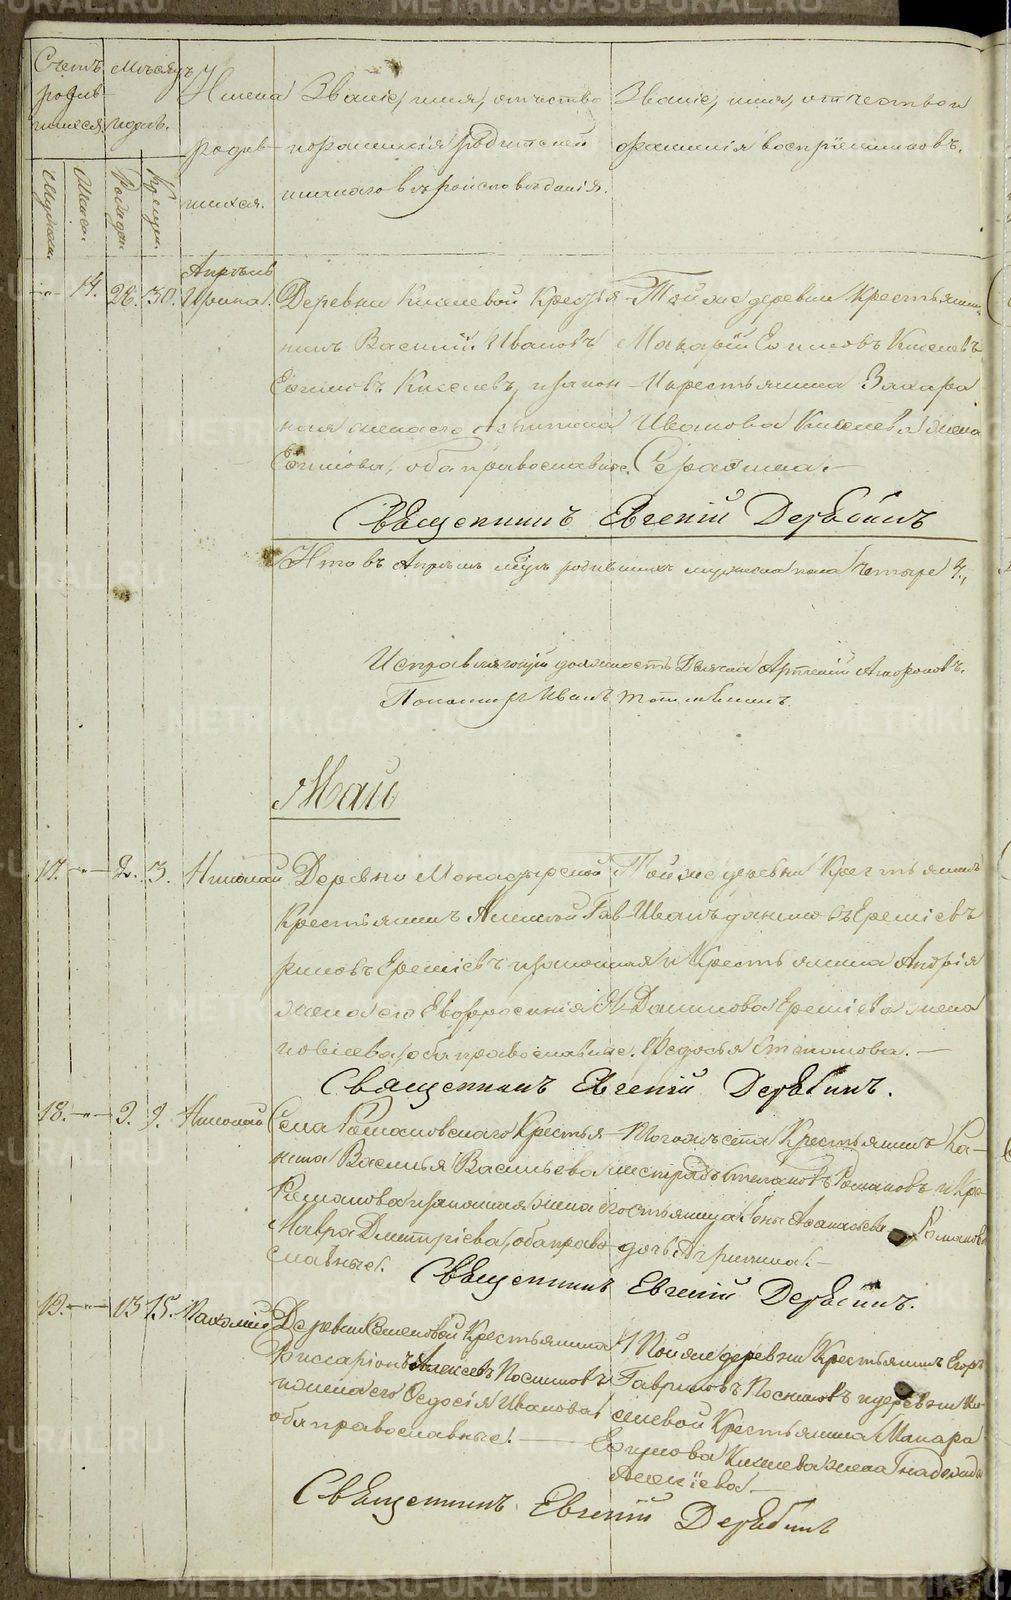 Счетъ родив-шихся.
Мѣсяцъ и день.
Имена родив-шихся.
Званіе, имя, отчество и фамилія родителей и какого вѣроисповѣданія.
Званіе, имя, отчество и фамилія воспріемниковъ.
Мужеска. Женска. Рожден. Крещен.
Апрѣль
14. 28. 30. Ирина.
Деревни Киселевой Кресть-
янинъ Василій Ивановъ
Евгимовъ Киселевъ, и закон-
ная жена его
Евгимова, оба православные.
Той же деревни Крестьянинъ
Макарій Евгимовъ Киселевъ
и крестьянина Захара
Иванова Киселева жена
Серафима.
Священникъ Евгеній Дерябинъ
Итого въ Апрѣлѣ мцѣ родившихся мужеска пола Четыре 4,
Исправляющій должность Дьячка Артемій
Пономарь Иванъ
Май
17. 2. 3. Николай
Деревни Монастырской
Крестьянинъ Алексѣй Гав-
риловъ Еремѣевъ и законная
жена его Евфросинія Я-
ковлева, оба православные.
Той же деревни Крестьянинъ
Иванъ Даниловъ Еремѣевъ
и Крестьянина Андрія
Данилова Еремѣева жена
Федосья Степанова.
Священникъ Евгеній Дерябинъ.
18. 9. 9. Николай
Села Романовскаго Кресть-
янина Василья Васильева
Романова законная жена его
Мавра Дмитріева, оба право-
славные.
Тогожъ села Крестьянинъ Ка-
листратъ Степановъ Романовъ и кре-
стьянина Ионы Аѳанасьева Романова
дочь Агрипина.
Священникъ Евгеній Дерябинъ.
19. 13 15. Пахомій
Деревни Семеновой Крестьянинъ
Виссаріонъ Алексѣевъ Посниковъ
и жена его Ѳедосія Иванова,
оба православные.
Той же деревни Крестьянинъ Егоръ
Гавриловъ Посниковъ и деревни Ки-
селевой Крестьянина Макара
Евгимова Киселева жена Надежда
Алексіева.
Священникъ Евгеній Дерябинъ
METRIKI.GASU-URAL.RU